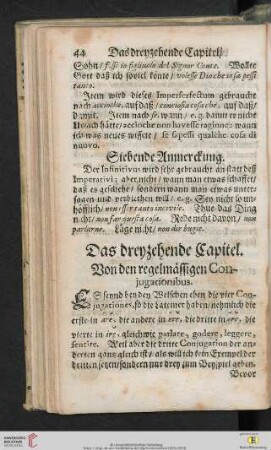 44 Das dreyzehende Capitel/
Sohn/ f. ss' io figliuolo del Signor Conte. Wolte
Gott daß ich soviel könte/ volesse Dio che io sapessi
tanto.
Item wird dieses Imperfectum gebraucht
nach acciochè, auf daß/ con questo che, auf daß/
damit. Item nach se, wann/ e.g. damit er nicht
Ursach hätte/ acciochè non havesse ragione: wann
ich was neues wüste/ se sapessi qualche cosa di
nuovo.
Siebende Anmerckung.
Der Infinitivus wird sehr gebraucht anstatt deß
Imperativi; aber nicht/ wann man etwas schaffet/
daß es geschehe/ sondern wann man etwas unter-
sagen und verbiethen will/ e.g. Sey nicht so un-
höfflich/ non esser tanto incivile. Thue das Ding
nicht/ non far questa cosa. Rede nicht davon/ non
parlarne. Lüge nicht/ non dir bugie.
Das dreyzehende Capitel.
Von den regelmässigen Con-
jugationibus.
ES seynd bey den Welschen eben die vier Con-
jugationes, so die Lateiner haben: nehmlich die
erste in are, die andere in ere, die dritte in ere, die
vierte in ire, gleichwie parlare, godere, leggere,
sentire. Weil aber die dritte Conjugation der an-
derten gantz gleich ist/ als will ich kein Exempel der
dritten setzen/ sondern nur drey zum Beyspiel geben.
Bevor